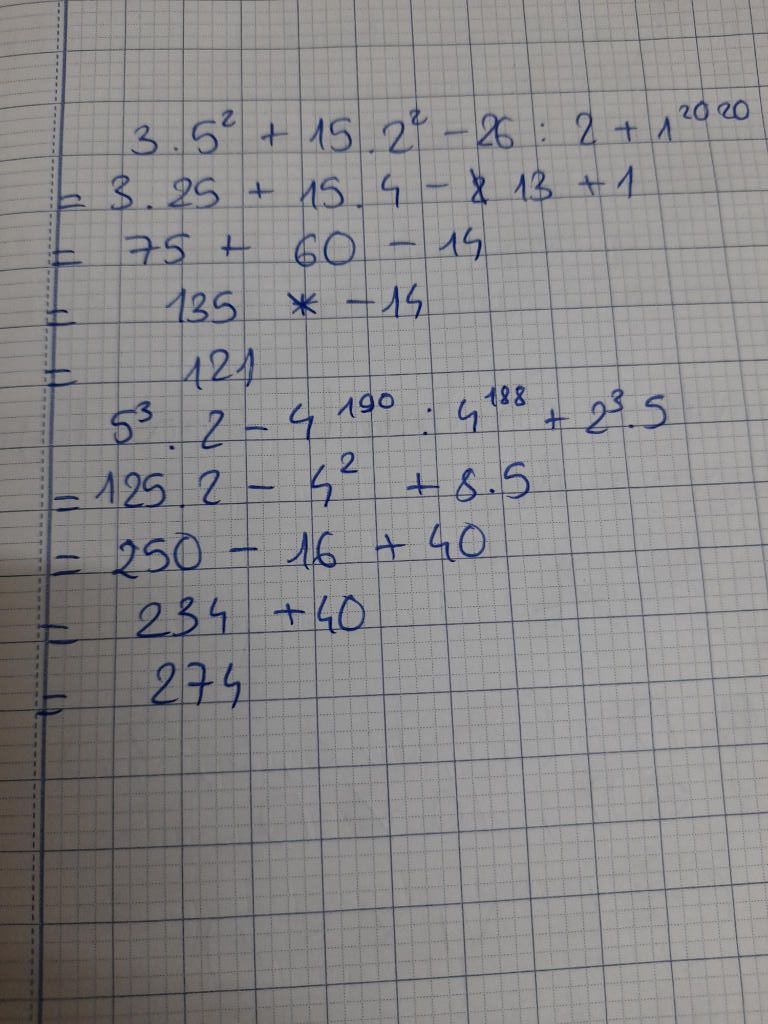 3 . 5² + 15 . 2² - 26 : 2 + 1²⁰²⁰
= 3 . 25 + 15 . 4 - 13 + 1
= 75 + 60 - 14
= 135 - 14
= 121
5³ . 2 - 4¹⁹⁰ : 4¹⁸⁸ + 2³ . 5
= 125 . 2 - 4² + 8 . 5
= 250 - 16 + 40
= 234 + 40
= 274